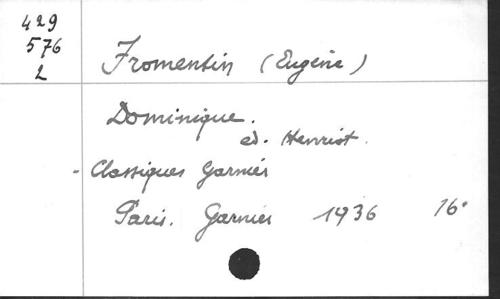 429
576
2
Fromentin (Eugène)
Dominique.
ed. Henriot.
- Classiques Garnier
Paris. Garnier 1936 16°